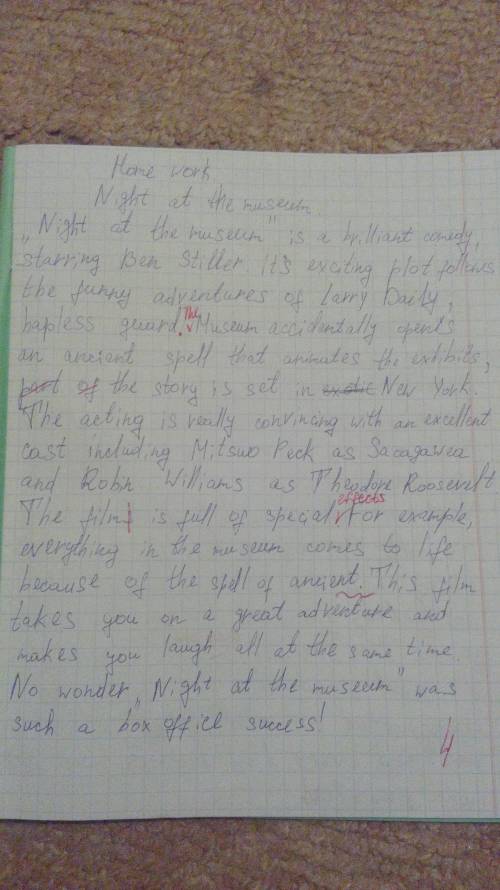 Home work
Night at the museum.
„Night at the museum" is a brilliant comedy,
starring Ben Stiller. It's exciting plot follows
the funny adventures of Larry Daily,
hapless guard. The Museum accidentally opents
an ancient spell that animates the exhibits,
part of the story is set in exotic New York.
The acting is really convincing with an excellent
cast including Mitsuo Peck as Sacagawea
and Robin Williams as Theodore Roosevelt
The films is full of special effects For example,
everything in the museum comes to life
because of the spell of ancient. This film
takes you on a great adventure and
makes you laugh all at the same time.
No wonder „Night at the museum" was
such a box office success!
4